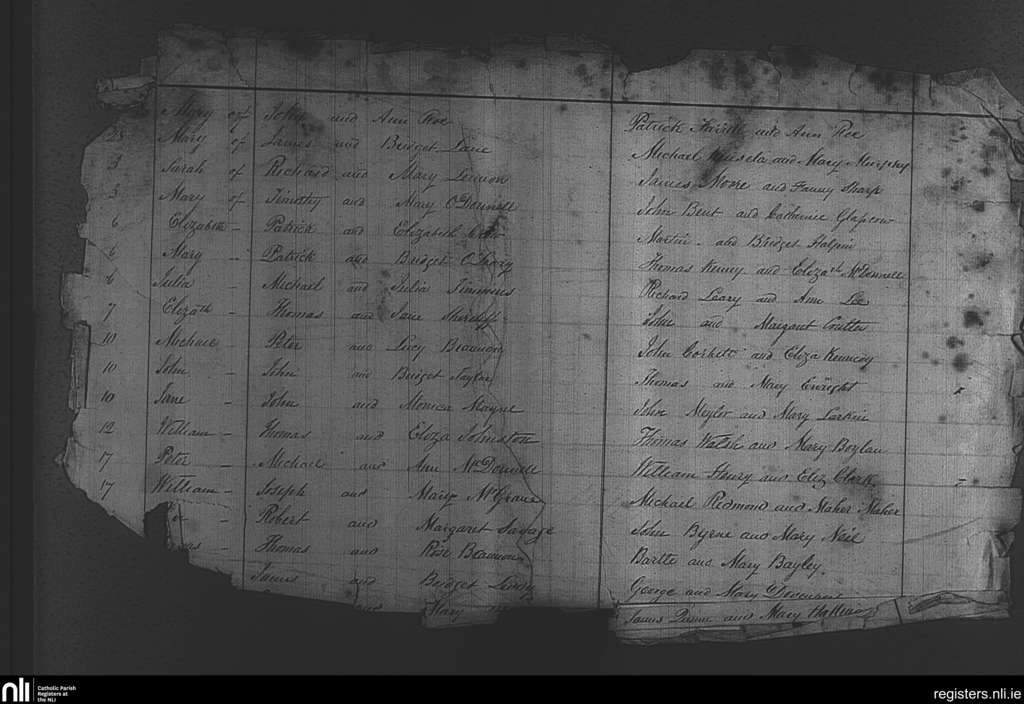 Mary of John and Ann Roe Patrick and Ann Roe
28 Mary of James and Bridget Lane Michael and Mary Murphy
3 Sarah of Richard and Mary Lennon James Moore and Fanny Sharp
3 Mary of Timothy and Mary O'Donnell John Bent and Catherine
6 Elizabeth – Patrick and Elizabeth Martin – and Bridget Halpin
6 Mary – Patrick and Bridget O'Leary Thomas Kenny and Elizath McDonnell
6 Julia – Michael and Julia Simmins Richard Leary and Ann Lee
7 Elizath – Thomas and Jane John and Margaret Coulter
10 Michael – Peter and Lucy Beaumony John Corbett and Eliza Kennedy
10 John – John and Bridget Taylor Thomas and Mary Enright
10 Jane – John and Monica Mayne John Meyler and Mary Larkin
12 William – Thomas and Eliza Johnston Thomas Walsh and Mary Boylan
17 Peter – Michael and Ann McDonnell William Henry and Eliz Clark
17 William – Joseph and Mary McGrane Michael Redmond and Maher Maher
– Robert and Margaret Savage John Byrne and Mary Neil
– Thomas and Rose Beaumon Bartle and Mary Bayley.
James and Bridget George and Mary Davenport
and Mary James Dunne and Mary
nli Catholic Parish
Registers at
the NLI
registers.nli.ie